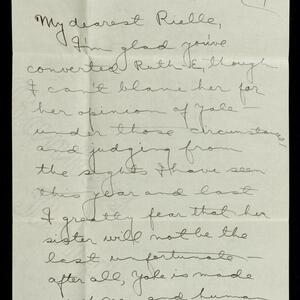 My dearest Rielle,
I'm glad you've
converted Ruth E, though
I can't blame her for
her opinion of Yale –
under those circumstances
and judging from
the sights I have seen
this year and last
I greatly fear that her
sister will not be the
last unfortunate –
after all, Yale is made
and human